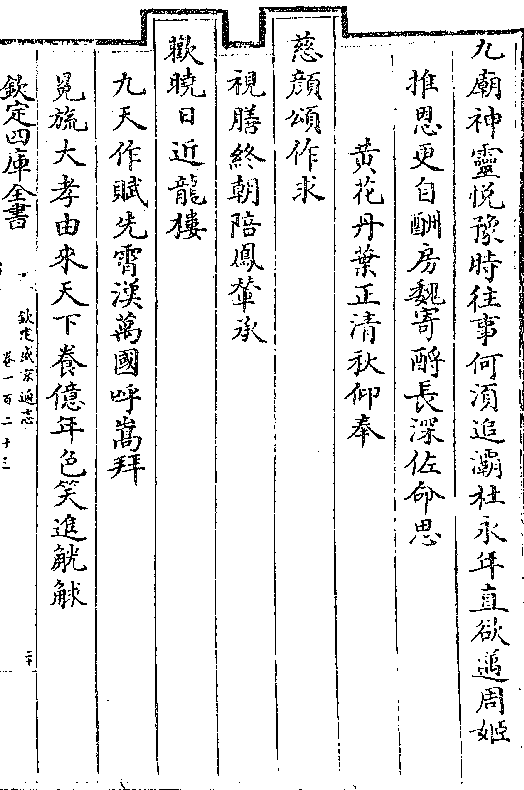 九廟神靈悦豫時往事何須追灞杜永年直欲邁周姬
推恩更自酬房魏寄酹長深佐命思
黄花丹葉正清秋仰奉
慈顔頌作求
視膳終朝陪鳳輦承
歡曉日近龍樓
九天作賦先霄漢萬國呼嵩拜
冕旒大孝由來天下養億年色笑進觥觩
欽定四庫全書
欽定盛京通志
卷一百二十三
二十